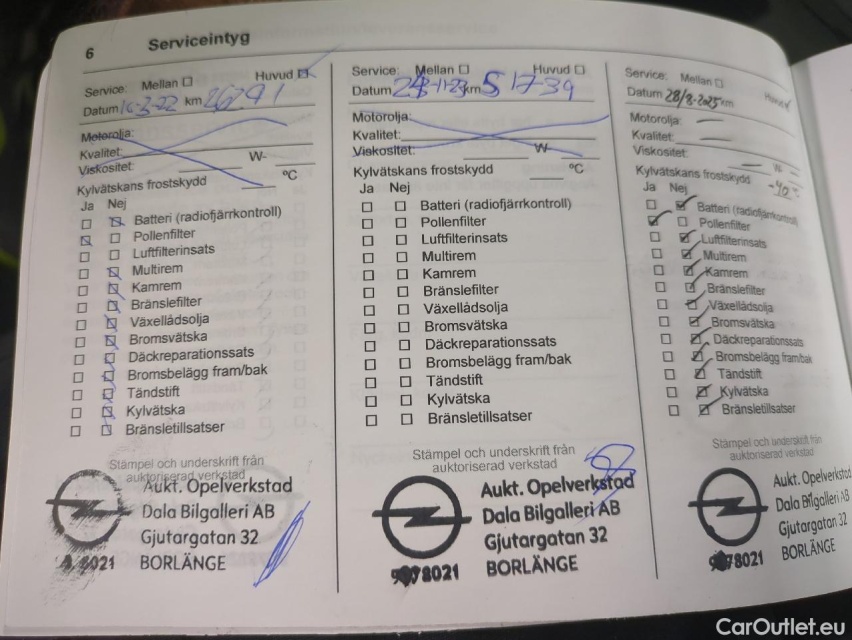 6 Serviceintyg
Service: Mellan Huvud
Datum km 26291
Motorolja:
Kvalitet:
Viskositet: W-
Kylvätskans frostskydd °C
Ja Nej
Batteri (radiofjärrkontroll)
Pollenfilter
Luftfilterinsats
Multirem
Kamrem
Bränslefilter
Växellådsolja
Bromsvätska
Däckreparationssats
Bromsbelägg fram/bak
Tändstift
Kylvätska
Bränsletillsatser
Stämpel och underskrift från
auktoriserad verkstad
Aukt. Opelverkstad
Dala Bilgalleri AB
Gjutargatan 32
8021 BORLÄNGE
Service: Mellan Huvud
Datum km
Motorolja:
Kvalitet:
Viskositet: W-
Kylvätskans frostskydd °C
Ja Nej
Batteri (radiofjärrkontroll)
Pollenfilter
Luftfilterinsats
Multirem
Kamrem
Bränslefilter
Växellådsolja
Bromsvätska
Däckreparationssats
Bromsbelägg fram/bak
Tändstift
Kylvätska
Bränsletillsatser
Stämpel och underskrift från
auktoriserad verkstad
Aukt. Opelverkstad
Dala Bilgalleri AB
Gjutargatan 32
78021 BORLÄNGE
Service: Mellan Huvud
Datum 28/8-2025 km
Motorolja: —
Kvalitet: —
Viskositet: — W- —
Kylvätskans frostskydd -40 °C
Ja Nej
Batteri (radiofjärrkontroll)
Pollenfilter
Luftfilterinsats
Multirem
Kamrem
Bränslefilter
Växellådsolja
Bromsvätska
Däckreparationssats
Bromsbelägg fram/bak
Tändstift
Kylvätska
Bränsletillsatser
Stämpel och underskrift från
auktoriserad verkstad
Aukt. Opelverkstad
Dala Bilgalleri AB
Gjutargatan 32
78021 BORLÄNGE
CarOutlet.eu